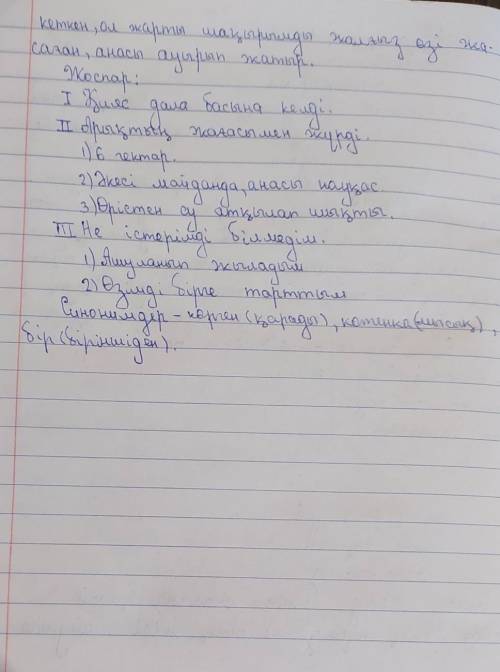 кеткен, ол жарты шақырымды жалғыз өзі жа-
саған, анасы ауырып жатыр.
Жоспар:
I Қияс дала басына келді.
II Арықтың жағасымен жүрді.
1) 6 гектар.
2) Әкесі майданда, анасы науқас
3) Өрістен су атқылап шықты.
III Не істерімді білмедім.
1) Ашуланып жыладым
2) Өзімді бірге тарттым
Синонимдер - көрген (қарады), котенка (мысық),
бір (біріншіден).